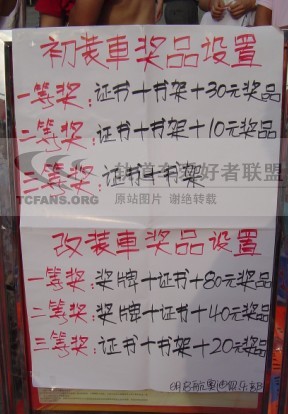 初装車奖品设置
一等奖：证书+书架+30元奖品
二等奖：证书+书架+10元奖品
三等奖：证书+书架
TCFANS.ORG
好者联盟
原站图片 谢绝转载
改装車奖品设置
一等奖：奖牌+证书+80元奖品
二等奖：奖牌+证书+40元奖品
三等奖：证书+书架+20元奖品